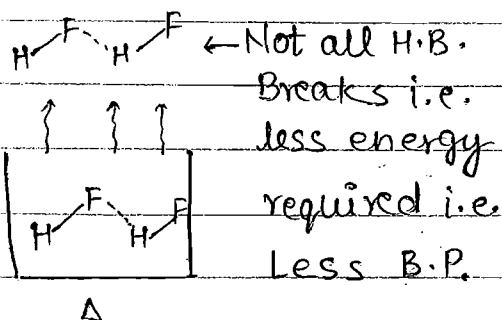 H F H F ← Not all H.B.
Breaks i.e.
less energy
H F H F required i.e.
Less B.P.
Δ